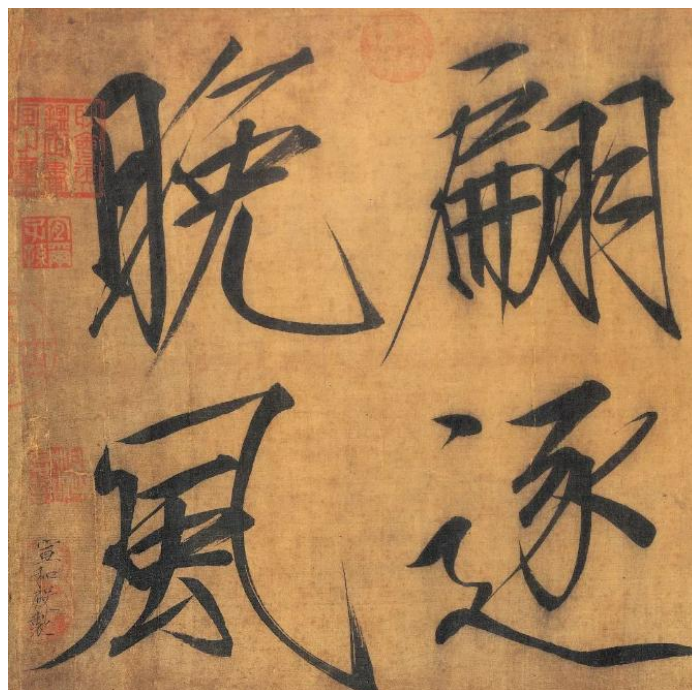 翩逐
晚風
宣和殿製